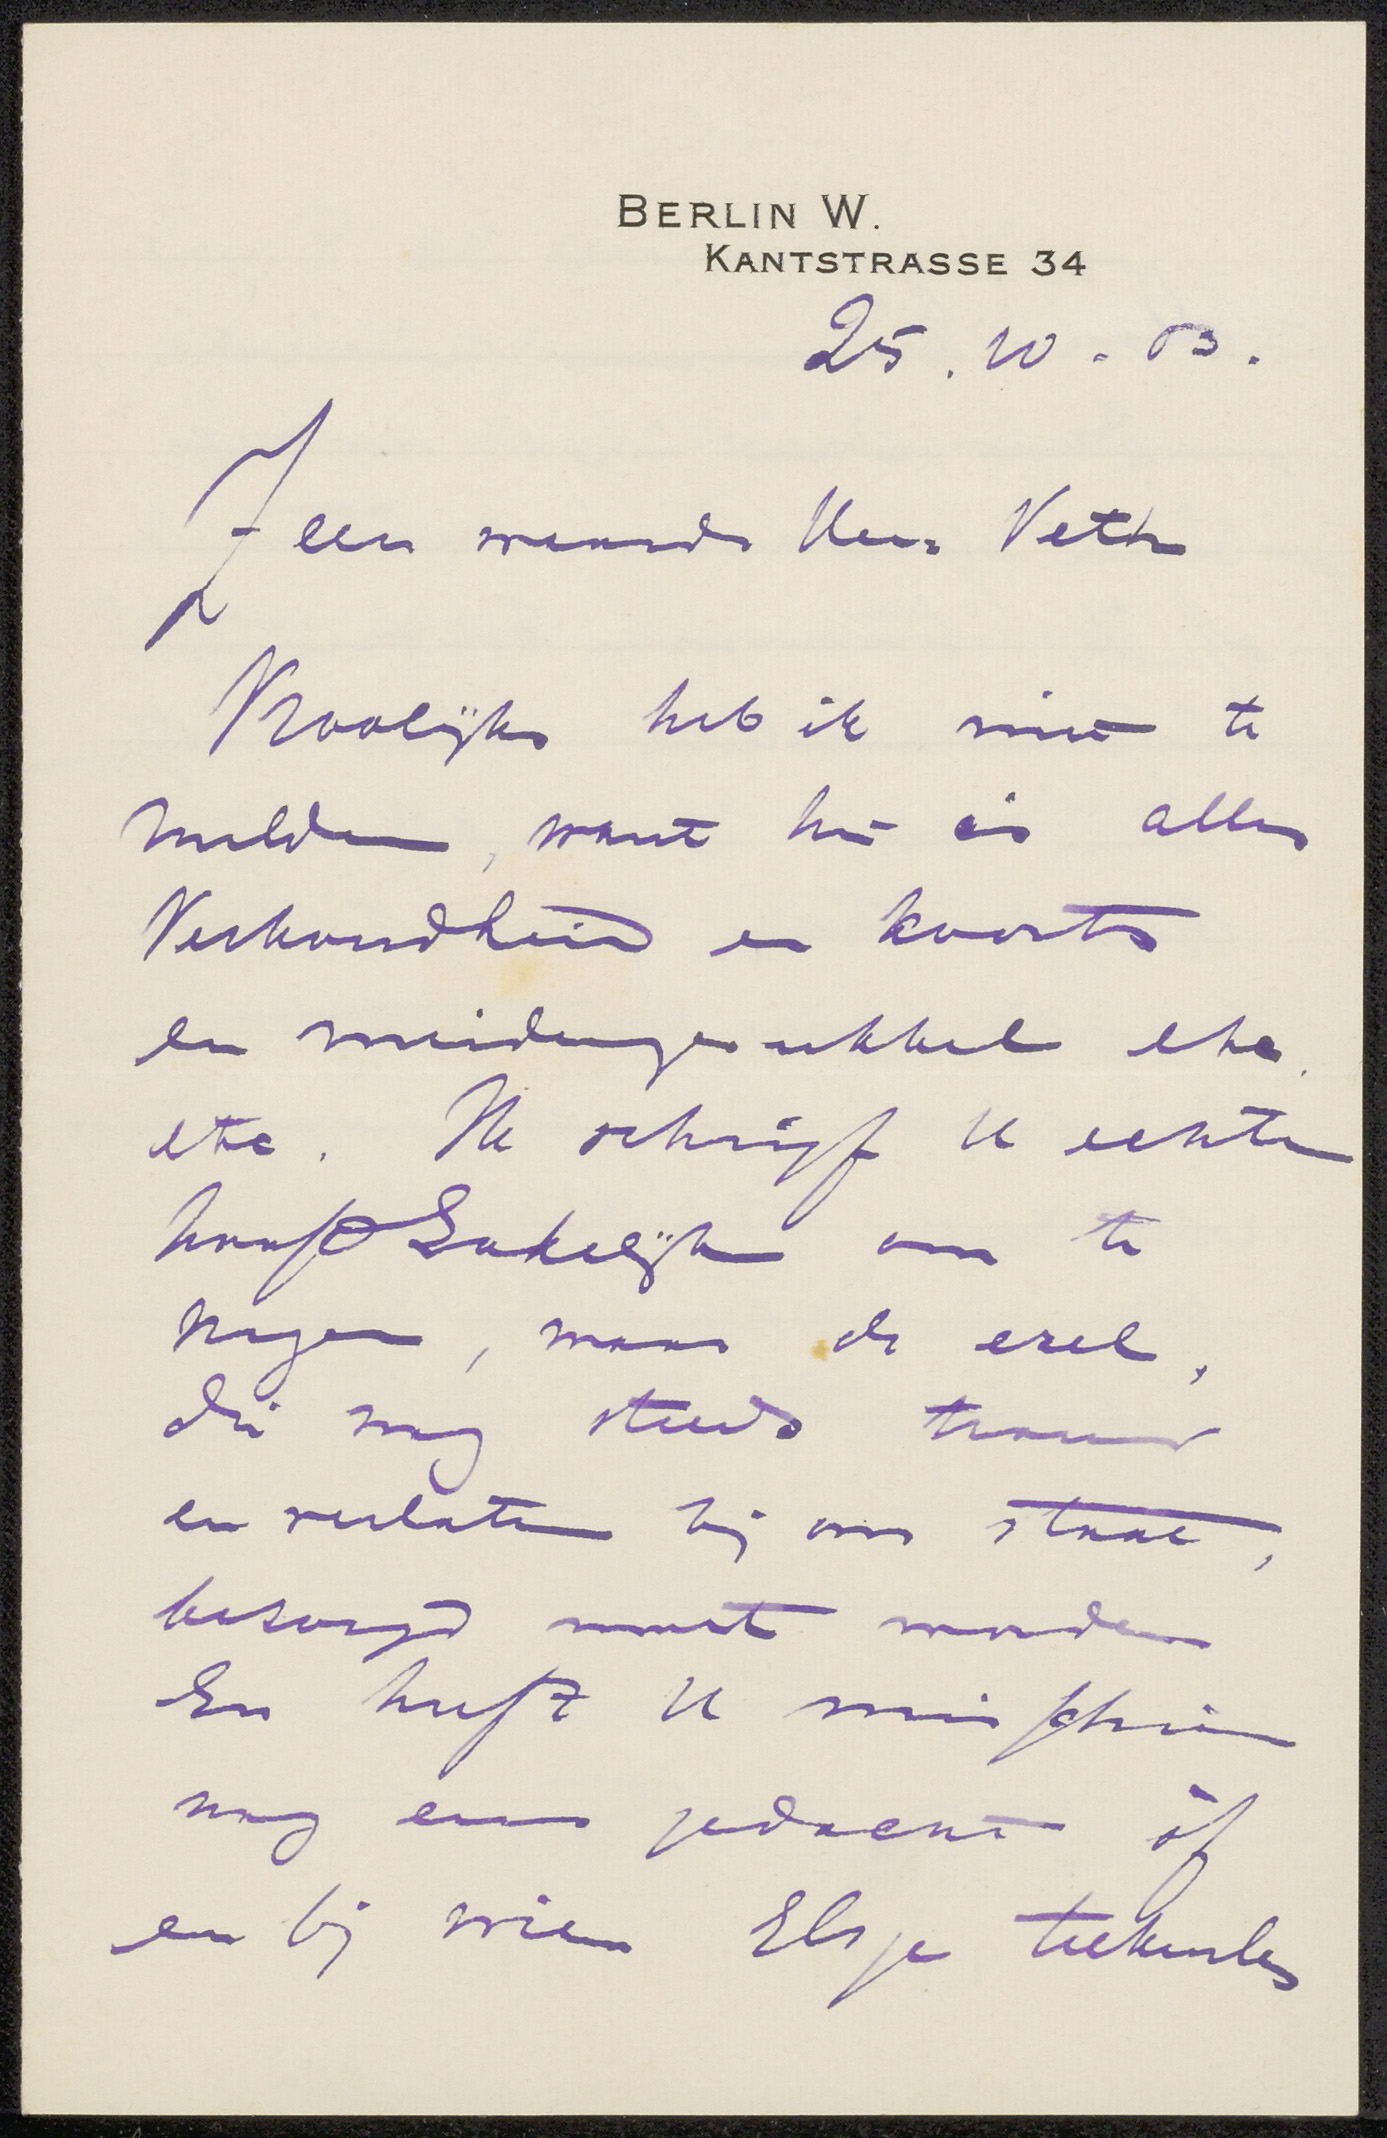 BERLIN W.
KANTSTRASSE 34
25.10.03.
Zeer waarde Heer Veth
Vroolijks heb ik niet te
melden, want hier is alles
Verkoudheid en koorts
en meidengesukkel etc.
etc. Ik schrijf U echter
hoofdzakelijk om te
vragen, waar de ezel,
die nog steeds treurend
en verlaten bij ons staat,
bezorgd moet worden
En heeft U misschien
nog eens gedacht òf
en bij wien Elsje teekenles